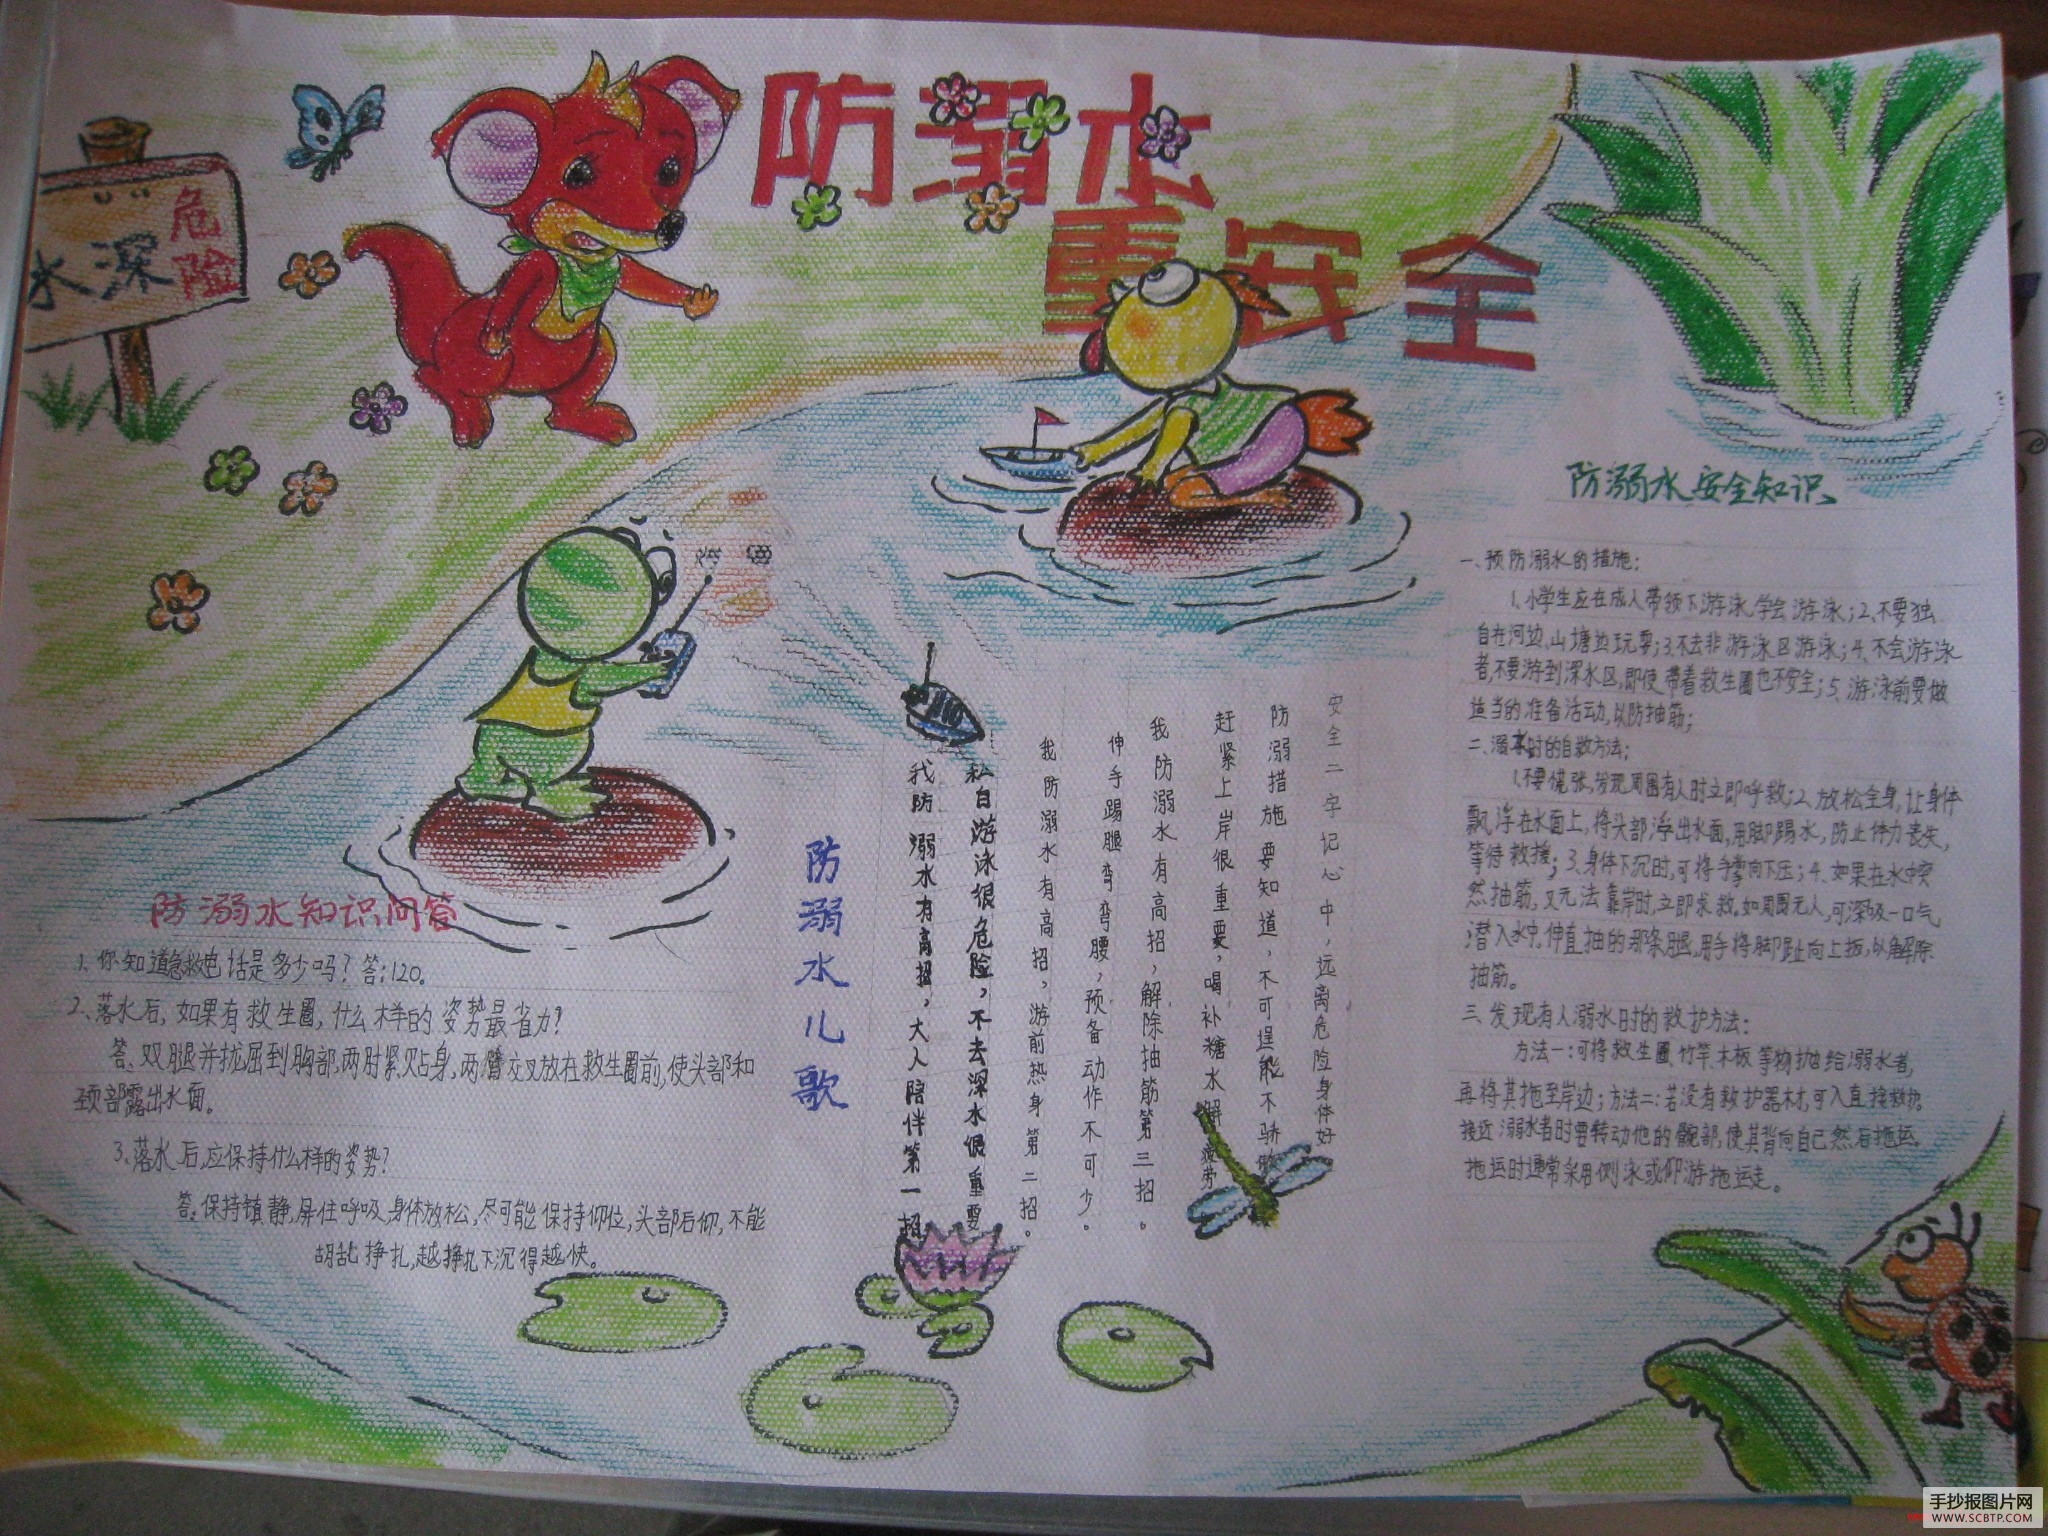 防溺水
重安全
危险
水深
防溺水知识问答
1、你知道急救电话是多少吗？答：120。
2、落水后，如果有救生圈，什么样的姿势最省力？
答、双腿并拢屈到胸部，两肘紧贴身，两臂交叉放在救生圈前，使头部和
颈部露出水面。
3、落水后，应保持什么样的姿势？
答。保持镇静，屏住呼吸，身体放松，尽可能保持仰位，头部后仰，不能
胡乱挣扎，越挣扎下沉得越快。
防溺水儿歌
我防溺水有高招，大人陪伴第一招
私自游泳很危险，不去深水很重要
我防溺水有高招，游前热身第二招。
伸手踢腿弯弯腰，预备动作不可少。
我防溺水有高招，解除抽筋第三招。
赶紧上岸很重要，喝补糖水解疲劳
防溺措施要知道，不可逞能不骄傲
安全二字记心中，远离危险身体好
防溺水安全知识
一、预防溺水的措施：
1、小学生应在成人带领下游泳，学会游泳；2、不要独
自在河边、山塘边玩耍；3、不去非游泳区游泳；4、不会游泳
者，不要游到深水区，即使带着救生圈也不安全；5、游泳前要做
适当的准备活动，以防抽筋；
二、溺水时的自救方法；
1、不要慌张，发现周围有人时立即呼救；2、放松全身，让身体
飘浮在水面上，将头部浮出水面，用脚踢水，防止体力丧失，
等待救援；3、身体下沉时，可将手掌向下压；4、如果在水中突
然抽筋，又无法靠岸时，立即求救。如周围无人，可深吸一口气
潜入水中，伸直抽的那条腿，用手将脚趾向上扳，以解除
抽筋。
三、发现有人溺水时的救护方法：
方法一：可将救生圈、竹竿、木板等物抛给溺水者，
再将其拖至岸边；方法二：若没有救护器材，可入直接救护。
接近溺水者时要转动他的髋部，使其背向自己然后拖运。
拖运时通常采用侧泳或仰游拖运走。
手抄报图片网
WWW.SCBTP.COM